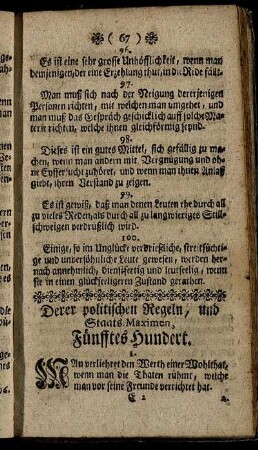 ( 67 )
96.
Es ist eine sehr grosse Unhöfflichkeit, wenn man
demjenigen, der eine Erzehlung thut, in die Rede fällt.
97.
Man muß sich nach der Neigung dererjenigen
Personen richten, mit welchen man umgehet, und
man muß das Gespräch geschicklich auff solche Ma-
terie richten, welche ihnen gleichförmig seynd.
98.
Dieses ist ein gutes Mittel, sich gefällig zu ma-
chen, wenn man andern mit Vergnügung und oh-
ne Eyffersucht zuhöret, und wenn man ihnen Anlaß
giebt, ihren Verstand zu zeigen.
99.
Es ist gewiß, daß man denen Leuten ehe durch all
zu vieles Reden, als durch all zu langwieriges Still-
schweigen verdrußlich wird.
100.
Einige, so im Unglück verdrießliche, streitsüchti-
ge und unversöhnliche Leute gewesen, werden her-
nach annehmlich, dienstfertig und leutselig, wenn
sie in einen glückseligern Zustand gerathen.
Derer politischen Regeln, und
Staats-Maximen,
Fünfftes Hundert.
1.
MAn verliehret den Werth einer Wohlthat,
wenn man die Thaten rühmt, welche
man vor seine Freunde verrichtet hat.
E 2 2.